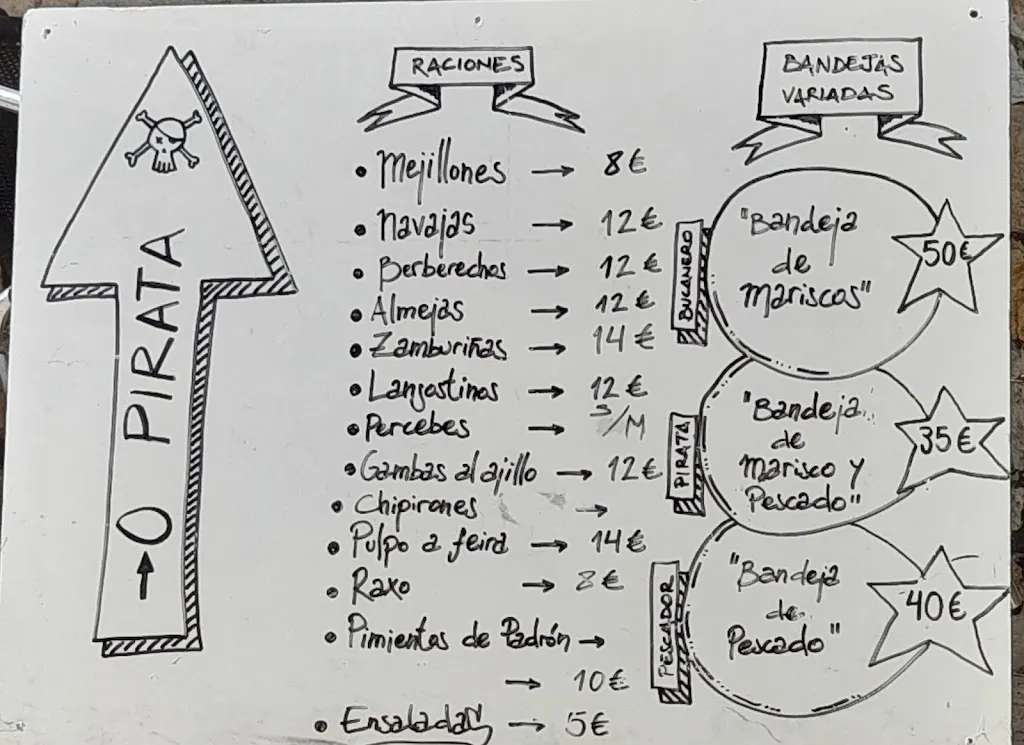 →O PIRATA
RACIONES
• Mejillones → 8€
• Navajas → 12€
• Berberechos → 12€
• Almejas → 12€
• Zamburiñas → 14€
• Langostinos → 12€
• Percebes → S/M
• Gambas al ajillo → 12€
• Chipirones →
• Pulpo a feira → 14€
• Raxo → 8€
• Pimientos de Padrón →
→ 10€
• Ensaladas → 5€
BANDEJAS
VARIADAS
BUCANERO
"Bandeja
de
Mariscos"
50€
PIRATA
"Bandeja
de
Marisco y
Pescado"
35€
PESCADOR
"Bandeja
de
Pescado"
40€